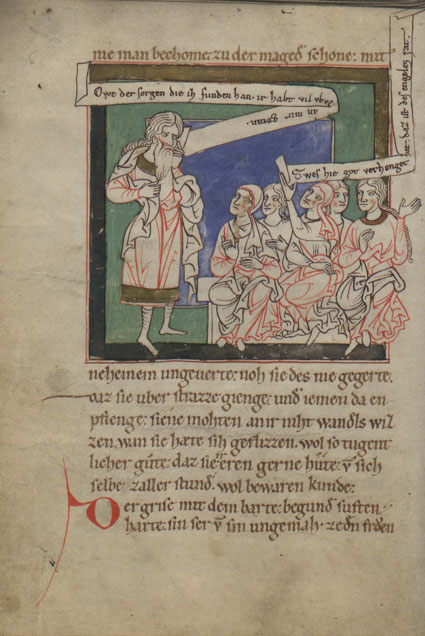 nie man bechome: zu der maged schone: mit
Owe der sorgen die ih funden han. ir habt vil vbel
an mir
Swes hie got verhenget
hat: daz ist des engels
neheinem ungeuerte: noh sie des nie gegerte.
daz sie uber strazze gienge: und iemen da en
pfienge: siene mohten an ir niht wandls wil
zen. wan sie hete sih geflizzen. wol so tugent
licher gute: daz sie eren gerne hute: vn sich
selbe zaller stund. wol bewaren kunde:
Der grise mit dem barte: begund suften
harte: sin ser vn sin ungemah. zedn frden